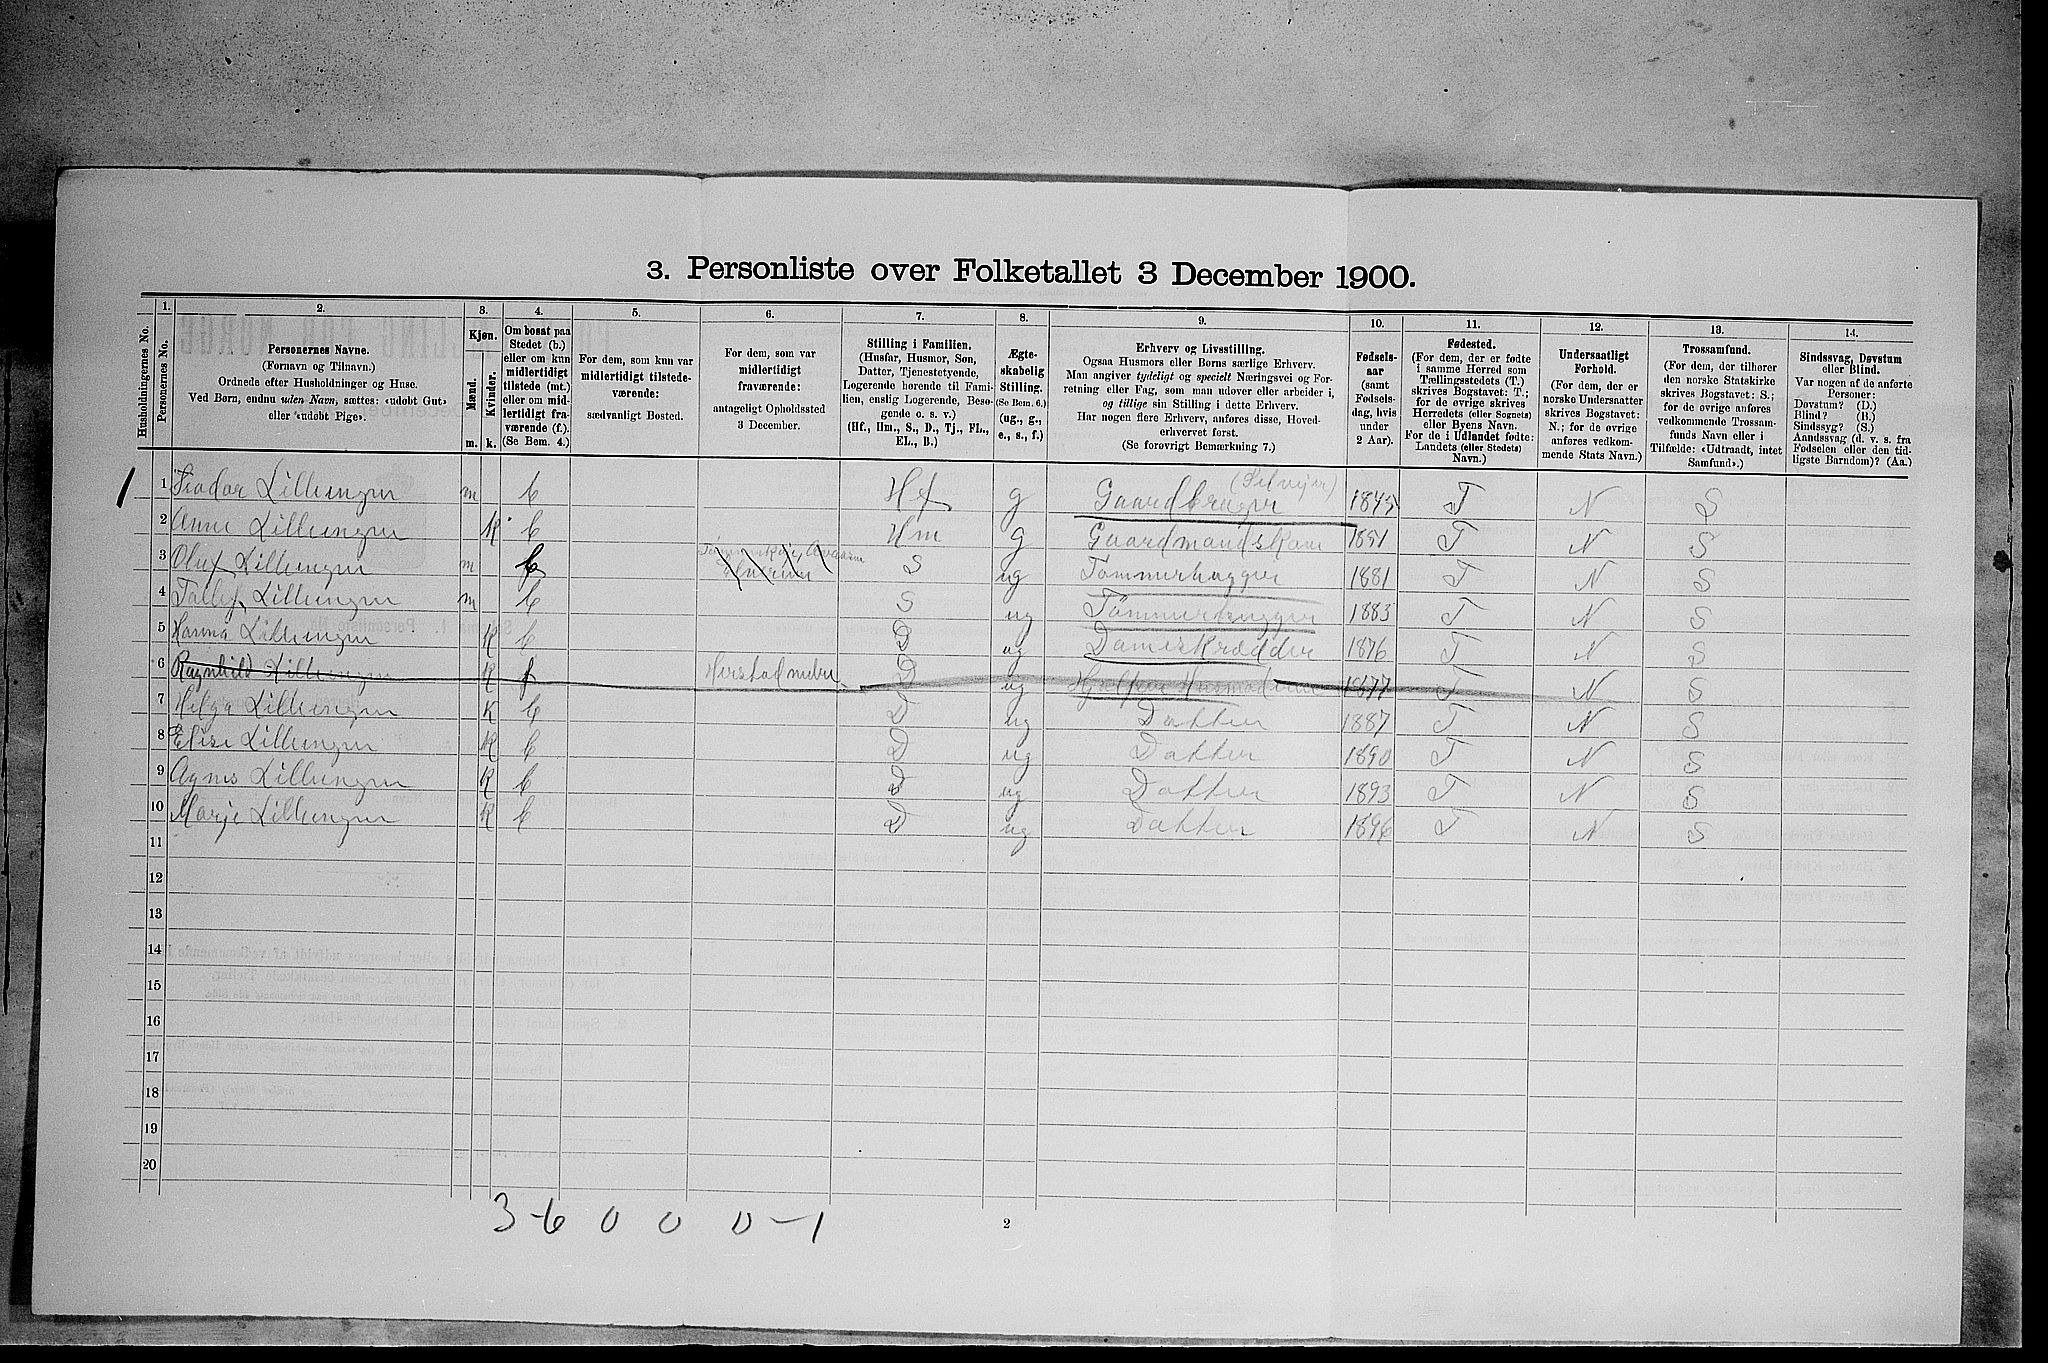 3. Personliste over Folketallet 3 December 1900.
Husholdningernes No.
1. Personernes No.
2. Personernes Navne. (Fornavn og Tilnavn.) Ordnede efter Husholdninger og Huse. Ved Børn, endnu uden Navn, sættes: «udøbt Gut» eller «udøbt Pige».
3. Kjøn. Mænd. m. Kvinder. k.
4. Om bosat paa Stedet (b.) eller om kun midlertidigt tilstede (mt.) eller om midlertidigt fraværende (f.). (Se Bem. 4.)
5. For dem, som kun var midlertidigt tilstedeværende: sædvanligt Bosted.
6. For dem, som var midlertidigt fraværende: antageligt Opholdssted 3 December.
7. Stilling i Familien. (Husfar, Husmor, Søn, Datter, Tjenestetyende, Logerende hørende til Familien, enslig Logerende, Besøgende o. s. v.) (Hf., Hm., S., D., Tj., FL., EL., B.)
8. Ægteskabelig Stilling. (Se Bem. 6.) (ug., g., e., s., f.)
9. Erhverv og Livsstilling. Ogsaa Husmors eller Børns særlige Erhverv. Man angiver tydeligt og specielt Næringsvei og Forretning eller Fag, som man udøver eller arbeider i, og tillige sin Stilling i dette Erhverv. Har nogen flere Erhverv, anføres disse, Hovederhvervet først. (Se forøvrigt Bemærkning 7.)
10. Fødselsaar (samt Fødselsdag, hvis under 2 Aar).
11. Fødested. (For dem, der er fødte i samme Herred som Tællingsstedets (T.) skrives Bogstavet: T.; for de øvrige skrives Herredets (eller Sognets) eller Byens Navn. For de i Udlandet fødte: Landets (eller Stedets) Navn.)
12. Undersaatligt Forhold. (For dem, der er norske Undersaatter skrives Bogstavet: N.; for de øvrige anføres vedkommende Stats Navn.)
13. Trossamfund. (For dem, der tilhører den norske Statskirke skrives Bogstavet: S.; for de øvrige anføres vedkommende Trossamfunds Navn eller i Tilfælde: «Udtraadt, intet Samfund».)
14. Sindssvag, Døvstum eller Blind. Var nogen af de anførte Personer: Døvstum? (D.) Blind? (B.) Sindssyg? (S.) Aandssvag (d. v. s. fra Fødselen eller den tidligste Barndom)? (Aa.)
1 1 Fredor Lilleengen m b Hf g Gaardbruger (Selveier) 1845 T N S
2 Anne Lilleengen K b Hm g Gaardmandskone 1851 T N S
3 Oluf Lilleengen m b S ug Tømmerhugger 1881 T N S
4 Tollef Lilleengen m b S ug Tømmerhugger 1883 T N S
5 Hanna Lilleengen K b D ug Dameskrædder 1876 T N S
6 Ragnhild Lilleengen K f D ug Hjælper Husmoderen 1877 T N S
7 Helga Lilleengen K b D ug Datter 1887 T N S
8 Elise Lilleengen K b D ug Datter 1890 T N S
9 Agnes Lilleengen K b D ug Datter 1893 T N S
10 Marje Lilleengen K b D ug Datter 1896 T N S
11
12
13
14
15
16
17
18
19
20
3-6 0 0 0-1
2